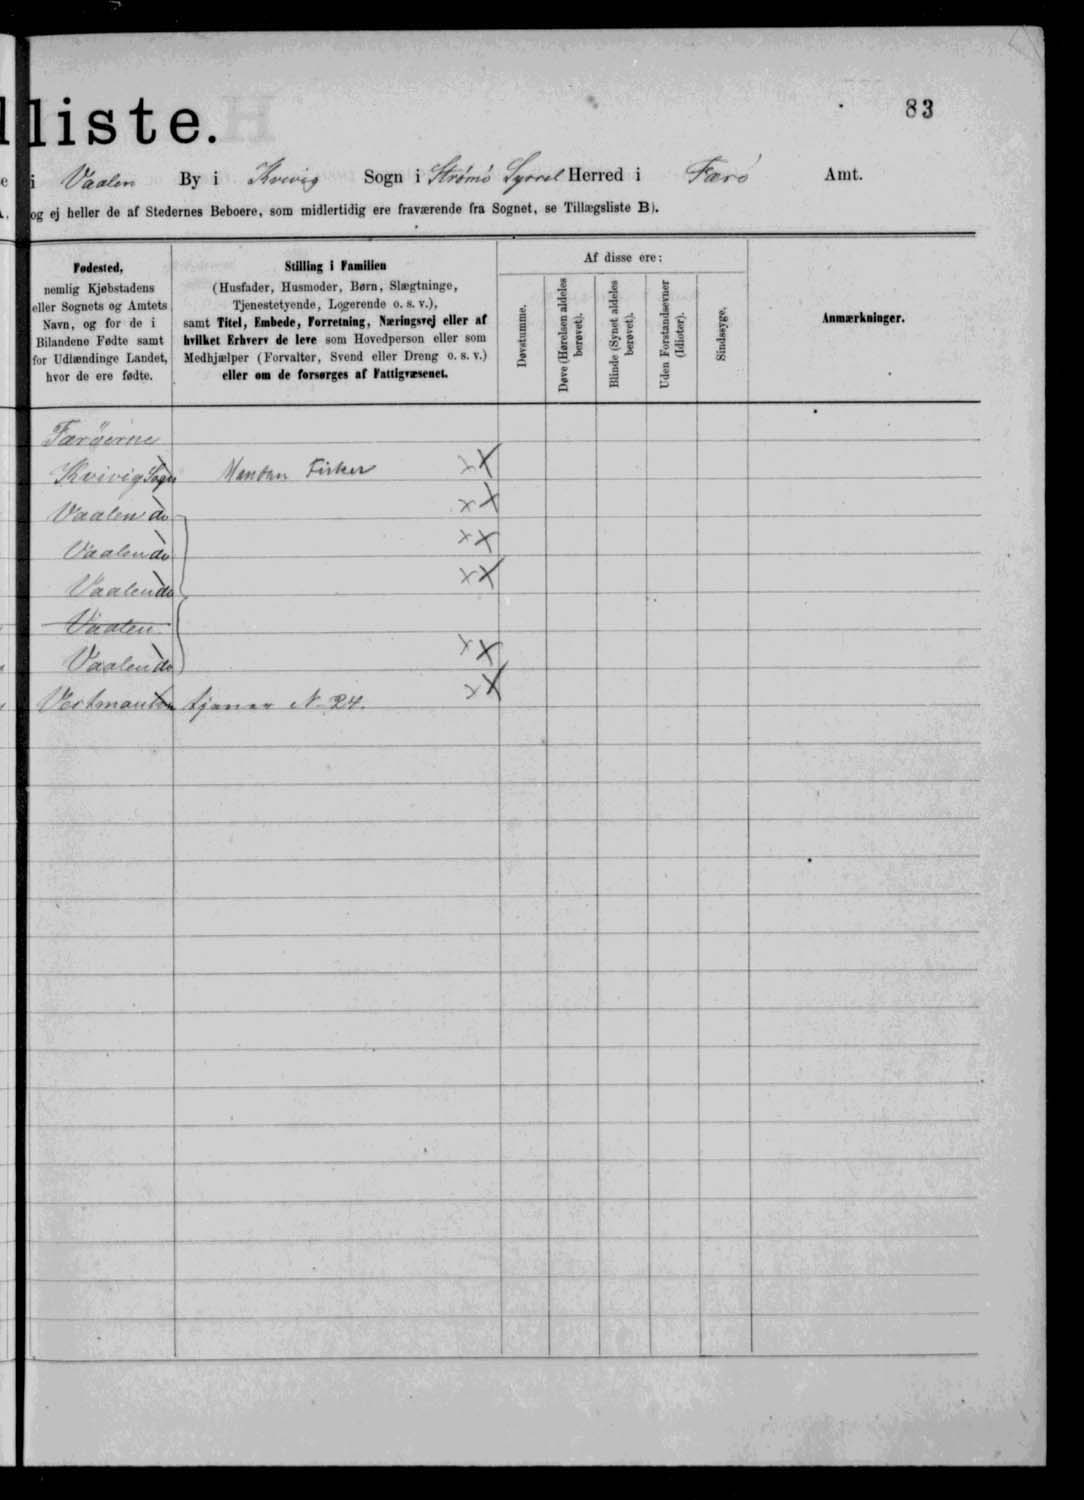 83
lliste.
i Vaalen By i Kvivig Sogn i Strømø Syssel Herred i Færø Amt.
og ej heller de af Stedernes Beboere, som midlertidig ere fraværende fra Sognet, se Tillægsliste B).
Fødested,
nemlig Kjøbstadens
eller Sognets og Amtets
Navn, og for de i
Bilandene Fødte samt
for Udlændinge Landet,
hvor de ere fødte.
Stilling i Familien
(Husfader, Husmoder, Børn, Slægtninge,
Tjenestetyende, Logerende o. s. v.),
samt Titel, Embede, Forretning, Næringsvej eller af
hvilket Erhverv de leve som Hovedperson eller som
Medhjælper (Forvalter, Svend eller Dreng o. s. v.)
eller om de forsørges af Fattigvæsenet.
Af disse ere:
Døvstumme.
Døve (Hørelsen aldeles
berøvet).
Blinde (Synet aldeles
berøvet).
Uden Forstandsevner
(Idioter).
Sindssyge.
Anmærkninger.
Færöerne
Kvivig Sogn Fisker xx
Vaalen do xx
Vaalen do xx
Vaalen do xx
Vaalen
Vaalen do xx
tjener N 24. xx